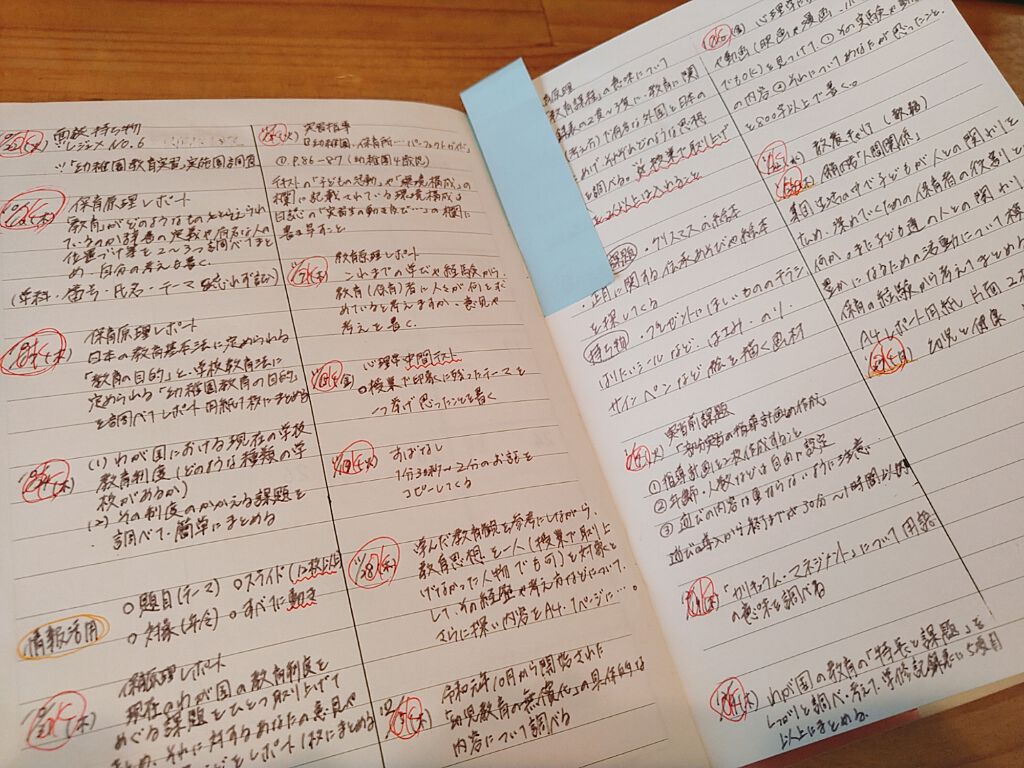 面談 持ち物
レジュメ NO.6
「幼稚園教育実習実施園調査
保育原理レポート
教育がどのようなものととらえられ
ているのか辞書の定義や有名な人の
位置づけ等を2〜3つ調べてまと
め、自分の考えも書く。
(学科・番号・氏名・テーマ 忘れず記入)
保育原理レポート
日本の教育基本法に定められる
「教育の目的」と、学校教育法に
定められる「幼稚園教育の目的」
を調べてレポート用紙1枚にまとめる
(1) わが国における現在の学校
教育制度(どのような種類の学
校があるか)
(2) その制度のかかえる課題を
調べて、簡単にまとめる
情報活用
○題目(テーマ) ○スライド(12枚以内
○対象(年令) ○すべに動き
保育原理レポート
現在のわが国の教育制度を
めぐる課題をひとつ取り上げて
まとめ、それに対するあなたの意見や
レポート1枚にまとめる
実習指導
①P.86-87(幼稚園4歳児)
テキストの「子どもの活動」や「環境構成」の
欄に記載されている環境構成を
日誌の「実習生の動きなど…」の欄に
書き写すこと
教育原理レポート
これまでの学びや経験から、
教育(保育)者に人々が何を求め
ていると考えますか。意見や
考えを書く。
心理学 中間テスト
○授業で印象に残ったテーマを
1つ挙げ思ったことを書く
すばなし
1分30秒〜2分のお話を
コピーしてくる
選んだ教育観を参考にしながら、
教育思想家を一人(授業で取り上
げなかった人物でも可)を対象と
して、その経歴や考え方などについて、
さらに深い内容をA4・1ページに…。
令和元年10月から開始された
「幼児教育の無償化」の具体的な
内容について調べる
「教育課程」の意味について
を調べる。※授業で取り上げ
た2人以上は入れること
課題 ・クリスマスの絵本
・正月に関する伝承あそびや絵本
を探してくる
持ち物 ・プレゼントにほしいもののチラシ
はりたいシールなど・はさみ・のり
サインペンなど 絵を描く画材
実習前課題
「部分実習の指導計画の作成」
①指導計画を2枚作成すること
②年齢・人数などは自由に設定
③遊びの内容は重ならないように注意
遊びは導入から終りまでが30分〜1時間以内
「カリキュラム・マネジメント」について用語
の意味を調べる
わが国の教育の「特長と課題」を
しっかりと調べ・考えて、学修記録表に5項目
以上にまとめる。
や動画(映画や漫画
でもOK)を見つけて、①その実験や動
の内容 ②それについてあなたが思ったこと
を800字以上で書く。
領域「人間関係」
集団生活の中で子どもが人との関わりを
深めていくための保育者の役割と
何か。また子ども達の人との関わり
豊かになるための活動について積
保育の経験から考えてまとめ
A4レポート用紙 片面2